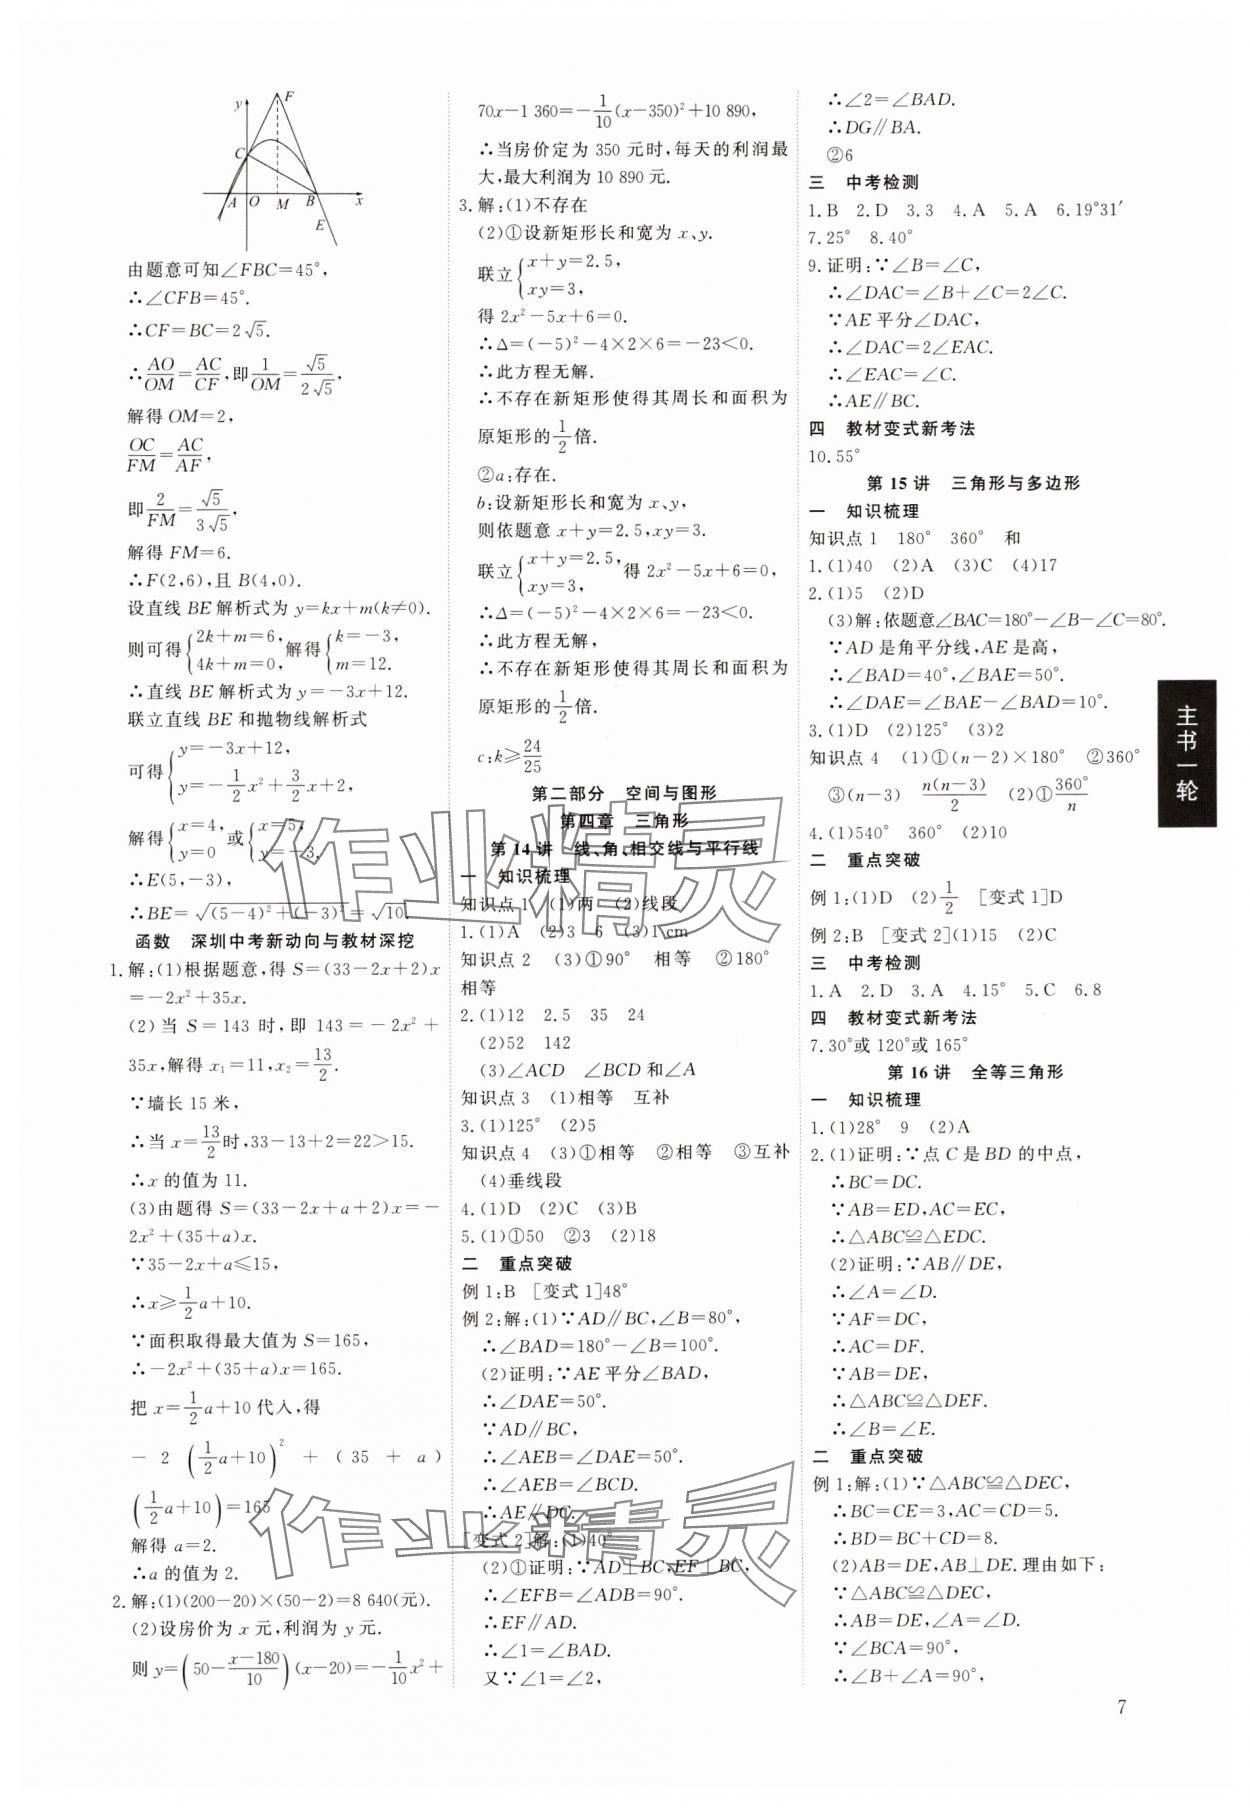 y
F
C
A
O
M
B
x
E
由题意可知∠FBC=45°,
∴∠CFB=45°.
∴CF=BC=2√5.
∴AO/OM=AC/CF,即1/OM=√5/2√5,
解得OM=2,
OC/FM=AC/AF,
即2/FM=√5/3√5,
解得FM=6.
∴F(2,6),且B(4,0).
设直线BE解析式为y=kx+m(k≠0).
则可得{2k+m=6, 4k+m=0,解得{k=-3, m=12.
∴直线BE解析式为y=-3x+12.
联立直线BE和抛物线解析式
可得{y=-3x+12, y=-1/2x²+3/2x+2,
解得{x=4, y=0或{x=5, y=-3,
∴E(5,-3),
∴BE=√(5-4)²+(-3)²=√10.
函数 深圳中考新动向与教材深挖
1.解:(1)根据题意,得S=(33-2x+2)x
=-2x²+35x.
(2)当S=143时,即143=-2x²+
35x,解得x₁=11,x₂=13/2.
∵墙长15米,
∴当x=13/2时,33-13+2=22>15.
∴x的值为11.
(3)由题得S=(33-2x+a+2)x=
-2x²+(35+a)x.
∵35-2x+a≤15,
∴x≥1/2a+10.
∵面积取得最大值为S=165,
∴-2x²+(35+a)x=165.
把x=1/2a+10代入,得
-2(1/2a+10)²+(35+a)
(1/2a+10)=165
解得a=2.
∴a的值为2.
2.解:(1)(200-20)×(50-2)=8 640(元).
(2)设房价为x元,利润为y元.
则y=(50-x-180/10)(x-20)=-1/10x²+
70x-1 360=-1/10(x-350)²+10 890,
∴当房价定为350元时,每天的利润最
大,最大利润为10 890元.
3.解:(1)不存在
(2)①设新矩形长和宽为x、y.
联立{x+y=2.5, xy=3,
得2x²-5x+6=0.
∴Δ=(-5)²-4×2×6=-23<0.
∴此方程无解.
∴不存在新矩形使得其周长和面积为
原矩形的1/2倍.
②a:存在.
b:设新矩形长和宽为x、y,
则依题意x+y=2.5,xy=3.
联立{x+y=2.5, xy=3,得2x²-5x+6=0,
∴Δ=(-5)²-4×2×6=-23<0.
∴此方程无解,
∴不存在新矩形使得其周长和面积为
原矩形的1/2倍.
c:k≥24/25
第二部分 空间与图形
第四章 三角形
第14讲 线、角、相交线与平行线
一 知识梳理
知识点1 (1)两 (2)线段
1.(1)A (2)3 6 (3)1 cm
知识点2 (3)①90° 相等 ②180°
相等
2.(1)12 2.5 35 24
(2)52 142
(3)∠ACD ∠BCD和∠A
知识点3 (1)相等 互补
3.(1)125° (2)5
知识点4 (3)①相等 ②相等 ③互补
(4)垂线段
4.(1)D (2)C (3)B
5.(1)①50 ②3 (2)18
二 重点突破
例1:B [变式1]48°
例2:解:(1)∵AD∥BC,∠B=80°,
∴∠BAD=180°-∠B=100°.
(2)证明:∵AE平分∠BAD,
∴∠DAE=50°.
∵AD∥BC,
∴∠AEB=∠DAE=50°.
∴∠AEB=∠BCD.
∴AE∥DC.
[变式2]解:(1)40°
(2)①证明:∵AD⊥BC,EF⊥BC,
∴∠EFB=∠ADB=90°.
∴EF∥AD.
∴∠1=∠BAD.
又∵∠1=∠2,
∴∠2=∠BAD.
∴DG∥BA.
②6
三 中考检测
1.B 2.D 3.3 4.A 5.A 6.19°31′
7.25° 8.40°
9.证明:∵∠B=∠C,
∴∠DAC=∠B+∠C=2∠C.
∵AE平分∠DAC,
∴∠DAC=2∠EAC.
∴∠EAC=∠C.
∴AE∥BC.
四 教材变式新考法
10.55°
第15讲 三角形与多边形
一 知识梳理
知识点1 180° 360° 和
1.(1)40 (2)A (3)C (4)17
2.(1)5 (2)D
(3)解:依题意∠BAC=180°-∠B-∠C=80°.
∵AD是角平分线,AE是高,
∴∠BAD=40°,∠BAE=50°.
∴∠DAE=∠BAE-∠BAD=10°.
3.(1)D (2)125° (3)2
知识点4 (1)①(n-2)×180° ②360°
③(n-3) n(n-3)/2 (2)①360°/n
4.(1)540° 360° (2)10
二 重点突破
例1:(1)D (2)1/2 [变式1]D
例2:B [变式2](1)15 (2)C
三 中考检测
1.A 2.D 3.A 4.15° 5.C 6.8
四 教材变式新考法
7.30°或120°或165°
第16讲 全等三角形
一 知识梳理
1.(1)28° 9 (2)A
2.(1)证明:∵点C是BD的中点,
∴BC=DC.
∵AB=ED,AC=EC,
∴△ABC≌△EDC.
(2)证明:∵AB∥DE,
∴∠A=∠D.
∵AF=DC,
∴AC=DF.
∵AB=DE,
∴△ABC≌△DEF.
∴∠B=∠E.
二 重点突破
例1:解:(1)∵△ABC≌△DEC,
∴BC=CE=3,AC=CD=5.
∴BD=BC+CD=8.
(2)AB=DE,AB⊥DE.理由如下:
∵△ABC≌△DEC,
∴AB=DE,∠A=∠D.
∵∠BCA=90°,
∴∠B+∠A=90°,
主书一轮
7
作业精灵
作业精灵